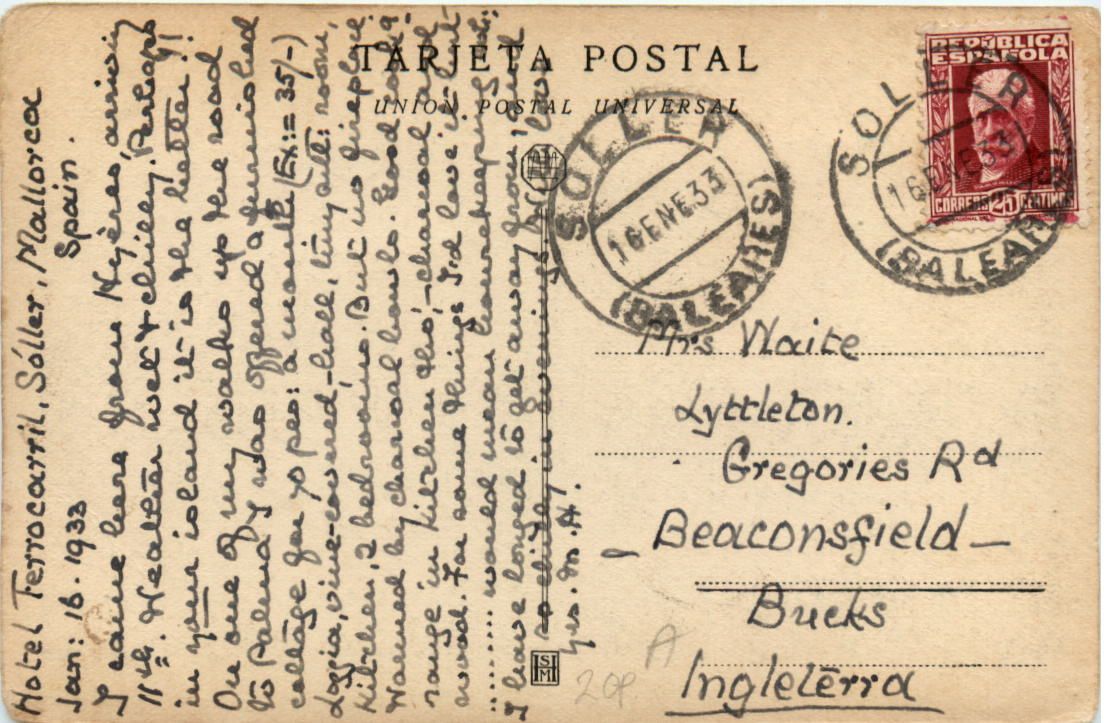 Hotel Ferrocarril, Sóller, Mallorca
Spain.
Jan: 16. 1933
I came here from Hyères, arriving
11th. Weather wet & chilly. Perhaps
in your island it is the better!!
On one of my walks up the road
to Palma I was offered a furnished
cottage for 70 pes: a month (Ex:= 35/-)
Loggia, vine-covered, hall, tiny sitt: room,
kitchen, 2 bedrooms. But no fireplace
Warmed by charcoal bowls. Good cook:g-
range in kitchen tho', - charcoal and
wood. For some things I'd love it but
......... would mean housekeeping.
I have longed to get away from, and
so chilly in evenings
Yrs. M. H.
TARJETA POSTAL
UNIÓN POSTAL UNIVERSAL
SOLLER
16 ENE 33
(BALEARES)
REPÚBLICA
ESPAÑOLA
CORREOS 25 CENTIMOS
SOLLER
16 ENE 33
(BALEARES)
Mrs Waite
Lyttleton.
Gregories Rd
Beaconsfield
Bucks
Inglaterra
A
20P